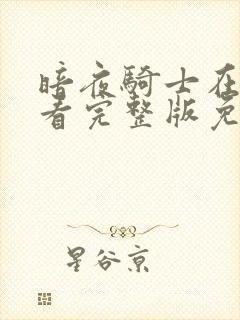 暗夜騎士在
看完整版免
星谷京